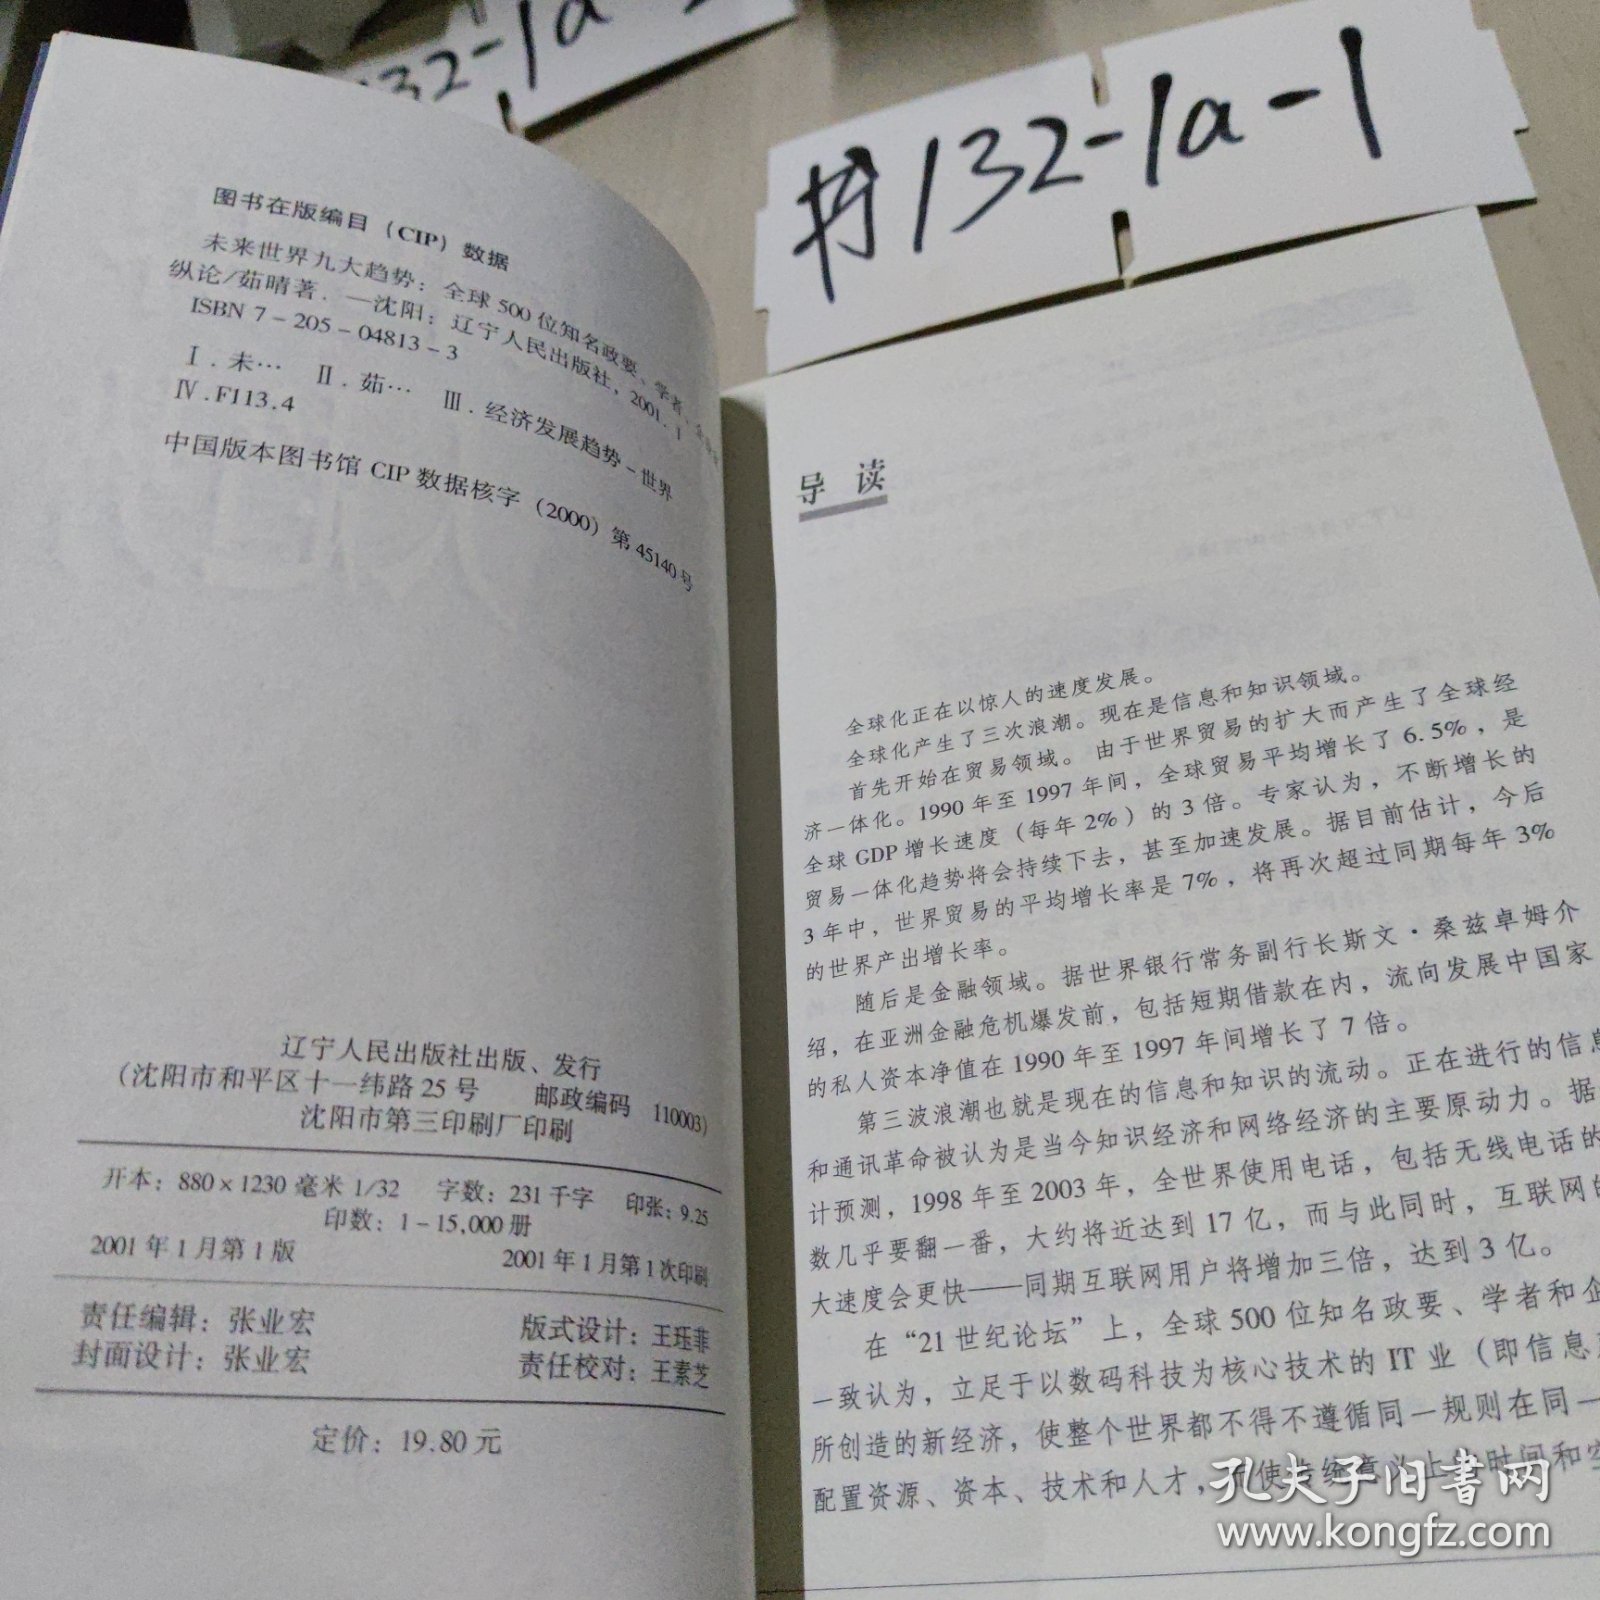 132-1a
特132-1a-1
图书在版编目（CIP）数据
未来世界九大趋势：全球500位知名政要、学者、
纵论/茹晴著.—沈阳：辽宁人民出版社，2001.1
ISBN 7-205-04813-3
Ⅰ.未… Ⅱ.茹… Ⅲ.经济发展趋势-世界
Ⅳ.F113.4
中国版本图书馆CIP数据核字（2000）第45140号
辽宁人民出版社出版、发行
（沈阳市和平区十一纬路25号 邮政编码 110003）
沈阳市第三印刷厂印刷
开本：880×1230毫米1/32 字数：231千字 印张：9.25
印数：1-15,000册
2001年1月第1版 2001年1月第1次印刷
责任编辑：张业宏 版式设计：王珏菲
封面设计：张业宏 责任校对：王素芝
定价：19.80元
导 读
全球化正在以惊人的速度发展。
全球化产生了三次浪潮。现在是信息和知识领域。
首先开始在贸易领域。由于世界贸易的扩大而产生了全球经
济一体化。1990年至1997年间，全球贸易平均增长了6.5%，是
全球GDP增长速度（每年2%）的3倍。专家认为，不断增长的
贸易一体化趋势将会持续下去，甚至加速发展。据目前估计，今后
3年中，世界贸易的平均增长率是7%，将再次超过同期每年3%
的世界产出增长率。
随后是金融领域。据世界银行常务副行长斯文·桑兹卓姆介
绍，在亚洲金融危机爆发前，包括短期借款在内，流向发展中国家
的私人资本净值在1990年至1997年间增长了7倍。
第三波浪潮也就是现在的信息和知识的流动。正在进行的信息
和通讯革命被认为是当今知识经济和网络经济的主要原动力。据
计预测，1998年至2003年，全世界使用电话，包括无线电话的
数几乎要翻一番，大约将近达到17亿，而与此同时，互联网的
大速度会更快——同期互联网用户将增加三倍，达到3亿。
在“21世纪论坛”上，全球500位知名政要、学者和企
一致认为，立足于以数码科技为核心技术的IT业（即信息
所创造的新经济，使整个世界都不得不遵循同一规则在同一
配置资源、资本、技术和人才，使传统意义上的时间和空
孔夫子旧书网
www.kongfz.com